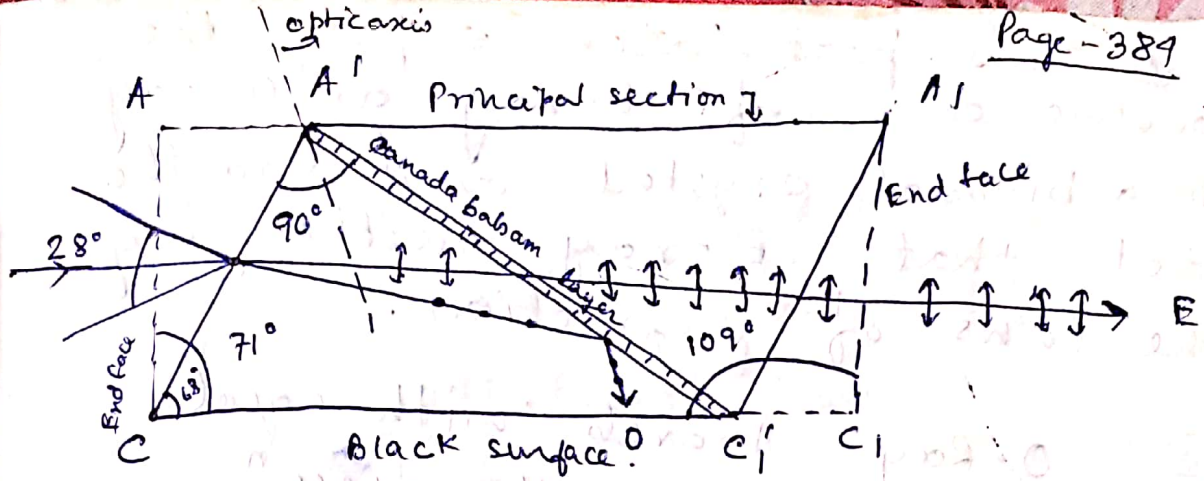 optic axis
Page - 384
A
A'
Principal section
A1
Canada balsam
layer
End face
90°
28°
71°
68°
109°
E
End face
C
Black surface.
O
C1'
C1